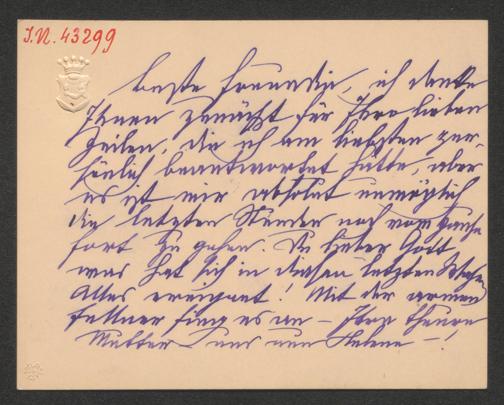 I.N. 43299
beste Freundin, ich danke
Ihnen zunächst für Ihre lieben
Zeilen, die ich am liebsten per-
sönlich beantwortet hätte, aber
es ist mir absolut unmöglich
die letzten Stunden noch vom Hause
fort zu gehen. Du lieber Gott
was hat sich in diesen letzten Wochen
Alles ereignet! Mit der armen
Fellner fing es an – Ihre theure
Mutter und nun Helene –!